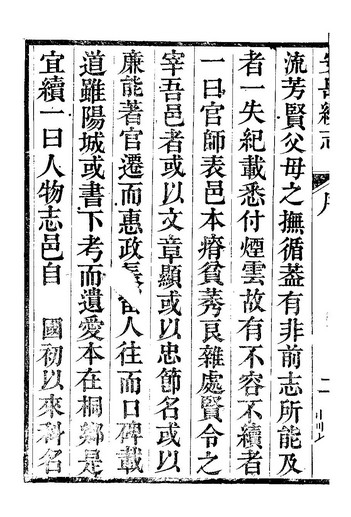 安邑續志
序
二
流芳賢父母之撫循葢有非前志所能及
者一失紀載悉付煙雲故有不容不續者
一曰官師表邑本瘠貧莠良雜處賢令之
宰吾邑者或以文章顯或以忠節名或以
廉能著官遷而惠政長留人往而口碑載
道雖陽城或書下考而遺愛本在桐鄉是
宜續一曰人物志邑自 國初以來科名